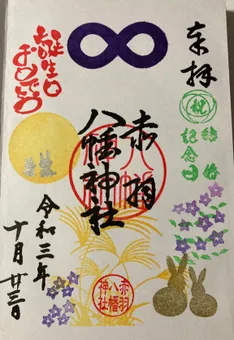 奉拝
祝
結婚
記念日
赤羽
八幡神社
誕生日
おめでとう
令和三年
十月廿三日
赤羽
八幡
神社